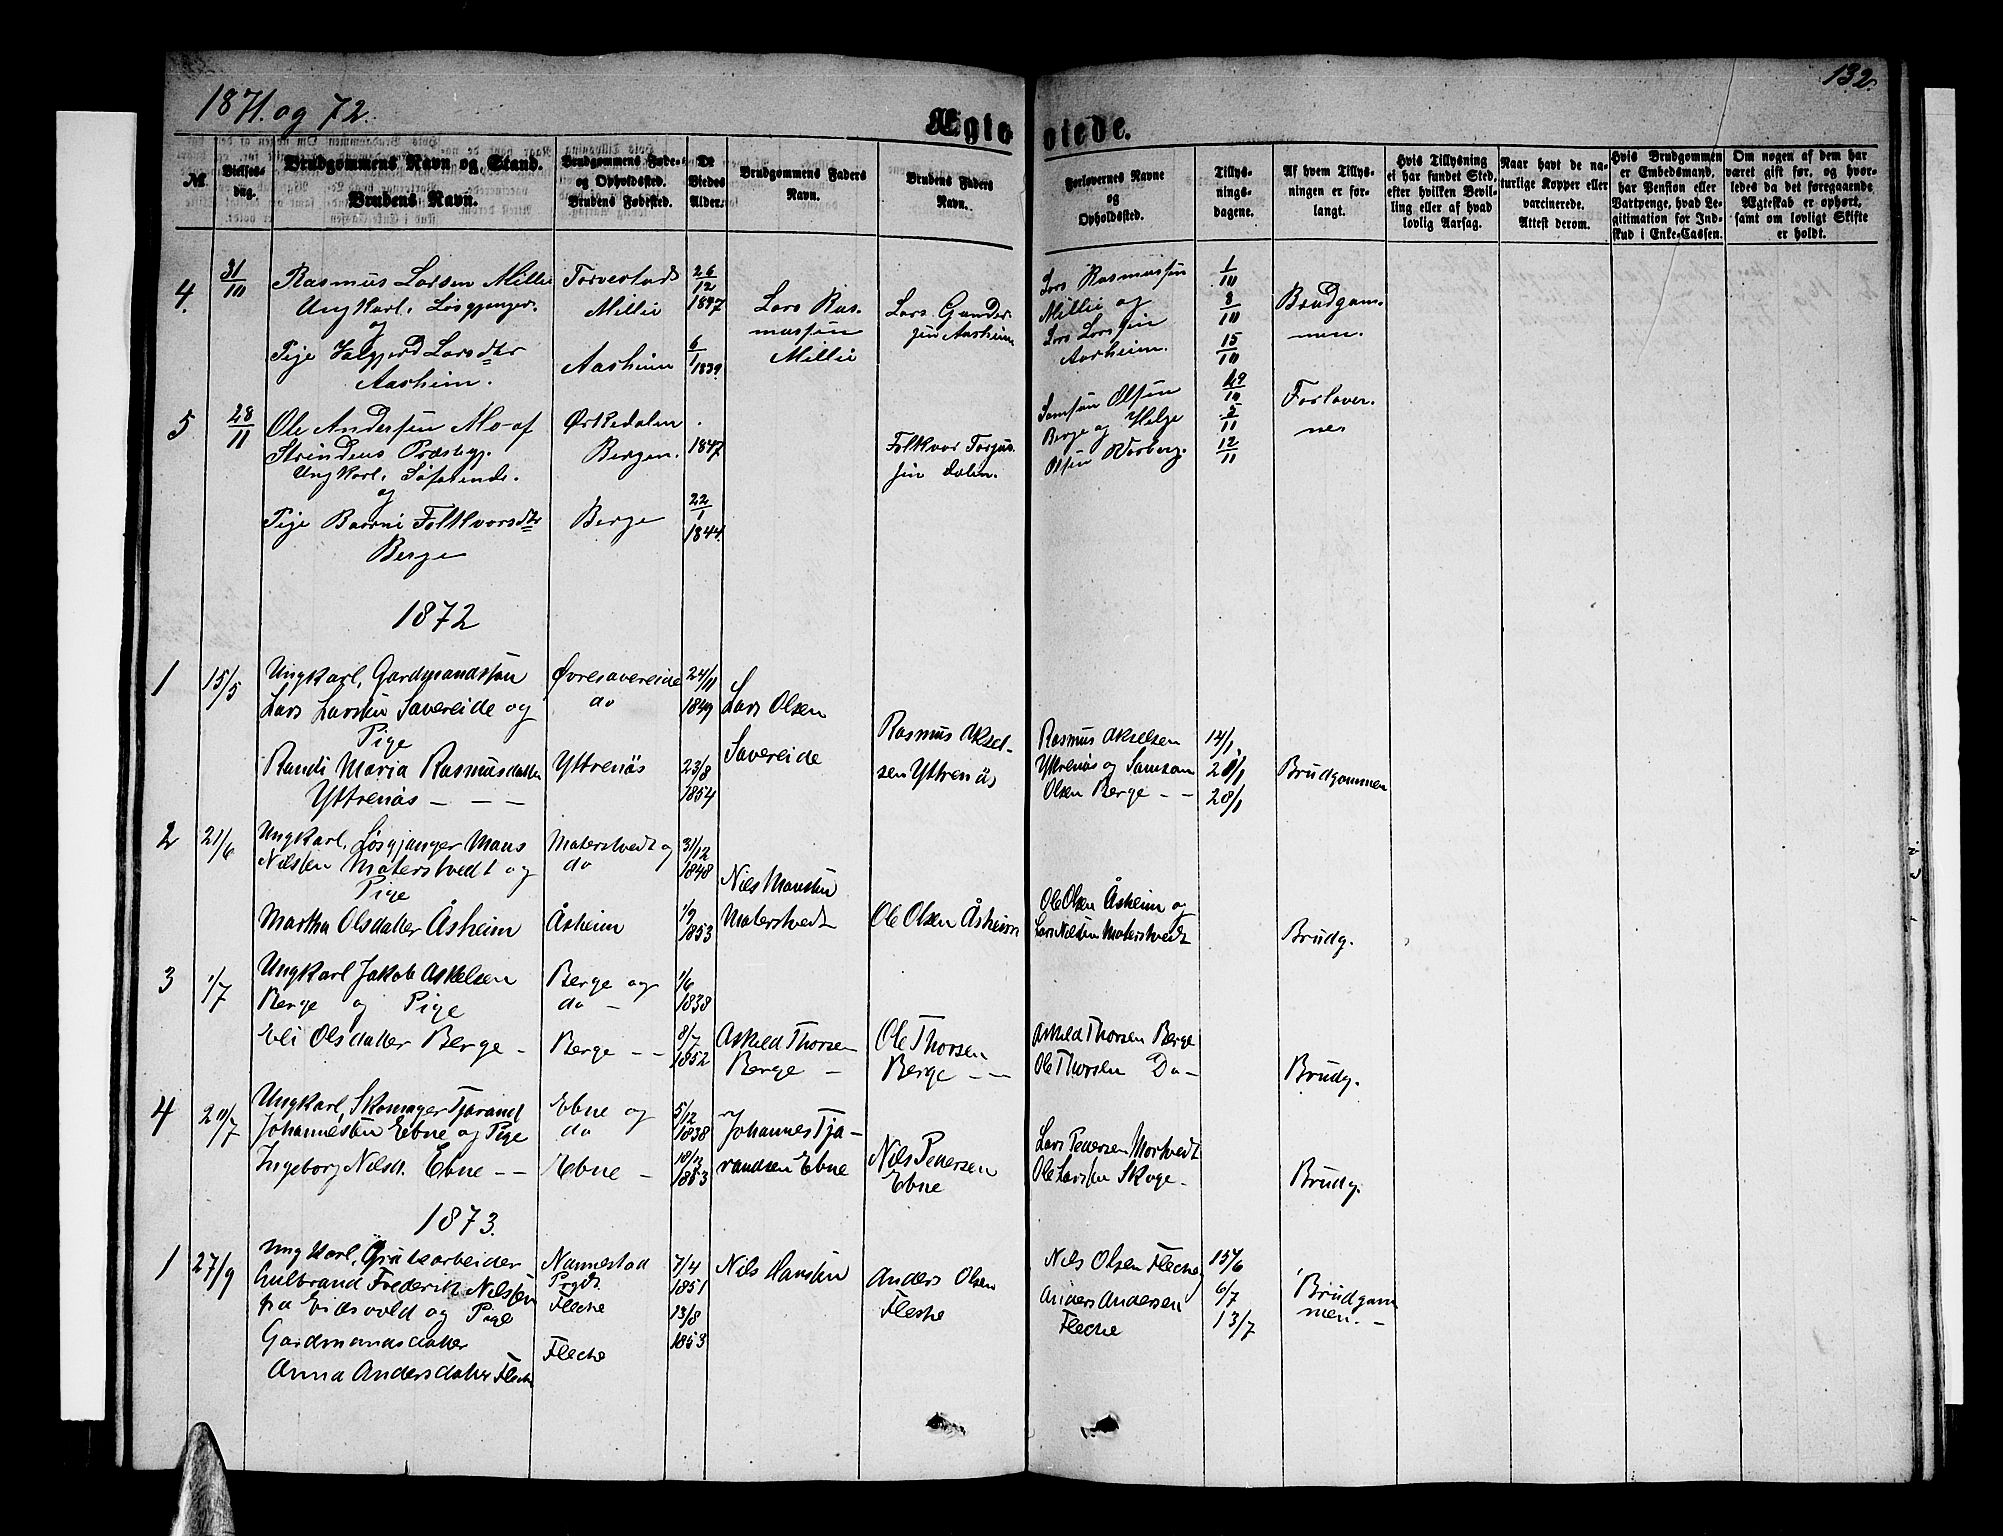 1871. og 72.
132.
Ægteviede.
№
Vielses-
dag.
Brudgommens Navn og Stand.
Brudens Navn.
Brudgommens Føde-
og Opholdssted.
Brudens Fødested.
De
Viedes
Alder.
Brudgommens Faders
Navn.
Brudens Faders
Navn.
Forlovernes Navne
og
Opholdssted.
Tillys-
nings-
dagene.
Af hvem Tillys-
ningen er for-
langt.
Hvis Tillysning
ei har fundet Sted,
efter hvilken Bevil-
ling eller af hvad
lovlig Aarsag.
Naar havt de na-
turlige Kopper eller
varcinerede.
Attest derom.
Hvis Brudgommen
er Embedsmand,
har Pension eller
Vartpenge, hvad Le-
gitimation for Ind-
skud i Enke-Cassen.
Om nogen af dem har
været gift før, og hvor-
ledes da det foregaaende
Ægteskab er ophørt,
samt om lovligt Skifte
er holdt.
4.
31/10
Rasmus Larsen Millie
Ungkarl, Løsgjenger.
og
Pige Valgjerd Larsdtr
Aasheim.
Torvestad
Millie
Aasheim
26/12
1847
6/1
1839.
Lars Ras-
mussen
Millie
Lars Gunder-
sen Aasheim
Lars Rasmussen
Millie og
Lars Larssen
Aasheim.
1/10
8/10
15/10
Brudgom-
men.
5
28/11
Ole Andersen Mo af
Strindens Præstegj.
Ungkarl, Søfarende.
og
Pige Baarni Folkvorsdtr
Berge
Ørkedalen
Bergen.
Berge
1847
22/1
1844.
Folkvor Torjus-
sen Dalen.
Samson Olsen
Berge og Helge
Olsen Vorberg.
29/10
5/11
12/11
Forlover-
ne
1872
1
15/5
Ungkarl, Gardmandssøn
Lars Larsen Savereide og
Pige
Randi Maria Rasmusdatter
Yttrenös - - -
Øvresavereide
do
Yttrenös
24/11
1849
23/8
1854
Lars Olsen
Savereide
Rasmus Aksel-
sen Yttrenös
Rasmus Akselsen
Yttrenös og Samson
Olsen Berge - -
14/1
21/1
28/1
Brudgommen
2
21/6
Ungkarl, Løsgjanger Mons
Nilssen Materstvedt og
Pige
Martha Olsdatter Åsheim
Materstvedt og
do
Åsheim
31/12
1848
1/9
1853
Nils Monsen
Materstvedt
Ole Olsen Åsheim
Ole Olsen Åsheim og
Lars Nilsen Materstvedt
Brudg.
3
1/7
Ungkarl Jakob Askelsen
Berge og Pige
Eli Olsdatter Berge -
Berge og
do -
Berge - -
1/6
1838
8/7
1852
Askeld Thorsen
Berge -
Ole Thorsen
Berge - -
Askeld Thorsen Berge
Ole Thorsen Do -
Brudg.
4
20/7
Ungkarl, Skomager Tjarand
Johannesen Ebne og Pige
Ingeborg Nilsd. Ebne - -
Ebne og
do
Ebne -
5/12
1838
18/12
1853
Johannes Tja-
randsen Ebne
Nils Pedersen
Ebne
Lars Pedersen Mortvedt
Ole Larssen Skoge -
Brudg.
1873.
1
27/9
Ungkarl, Grubearbeider
Gulbrand Frederik Nilssen
fra Eidsvold og Pige
Gardmandsdatter
Anna Andersdatter Fleche
Nannestad
Prgdt.
Fleche
Fleche
7/4
1851
13/8
1853
Nils Hansen
Anders Olsen
Fleche
Nils Olsen Fleche
Anders Andersen
Fleche
15/6
6/7
13/7
Brudgom-
men. -